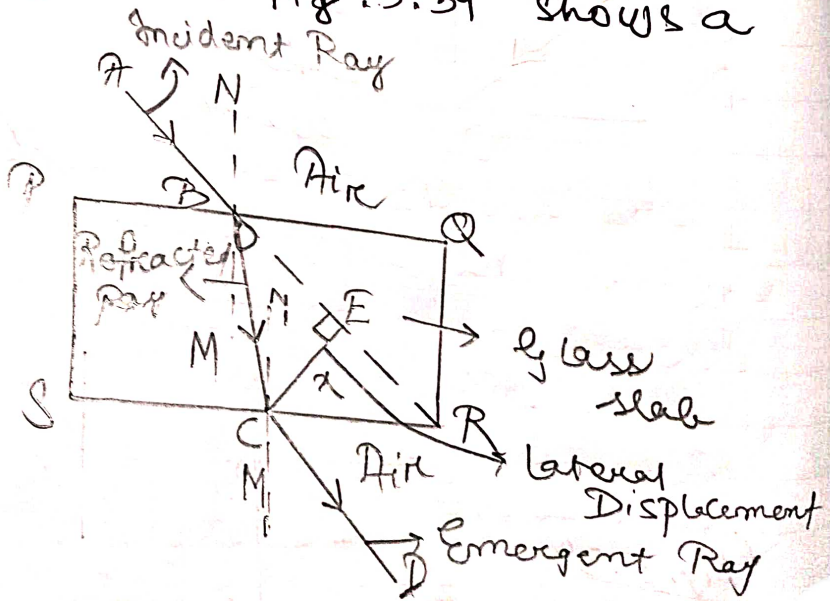 Fig. 5.39 shows a
Incident Ray
A
N
Air
P
B
Q
Refracted
Ray
N
E
M
Glass
slab
x
S
C
R
Air
Lateral
Displacement
M
Emergent Ray
D